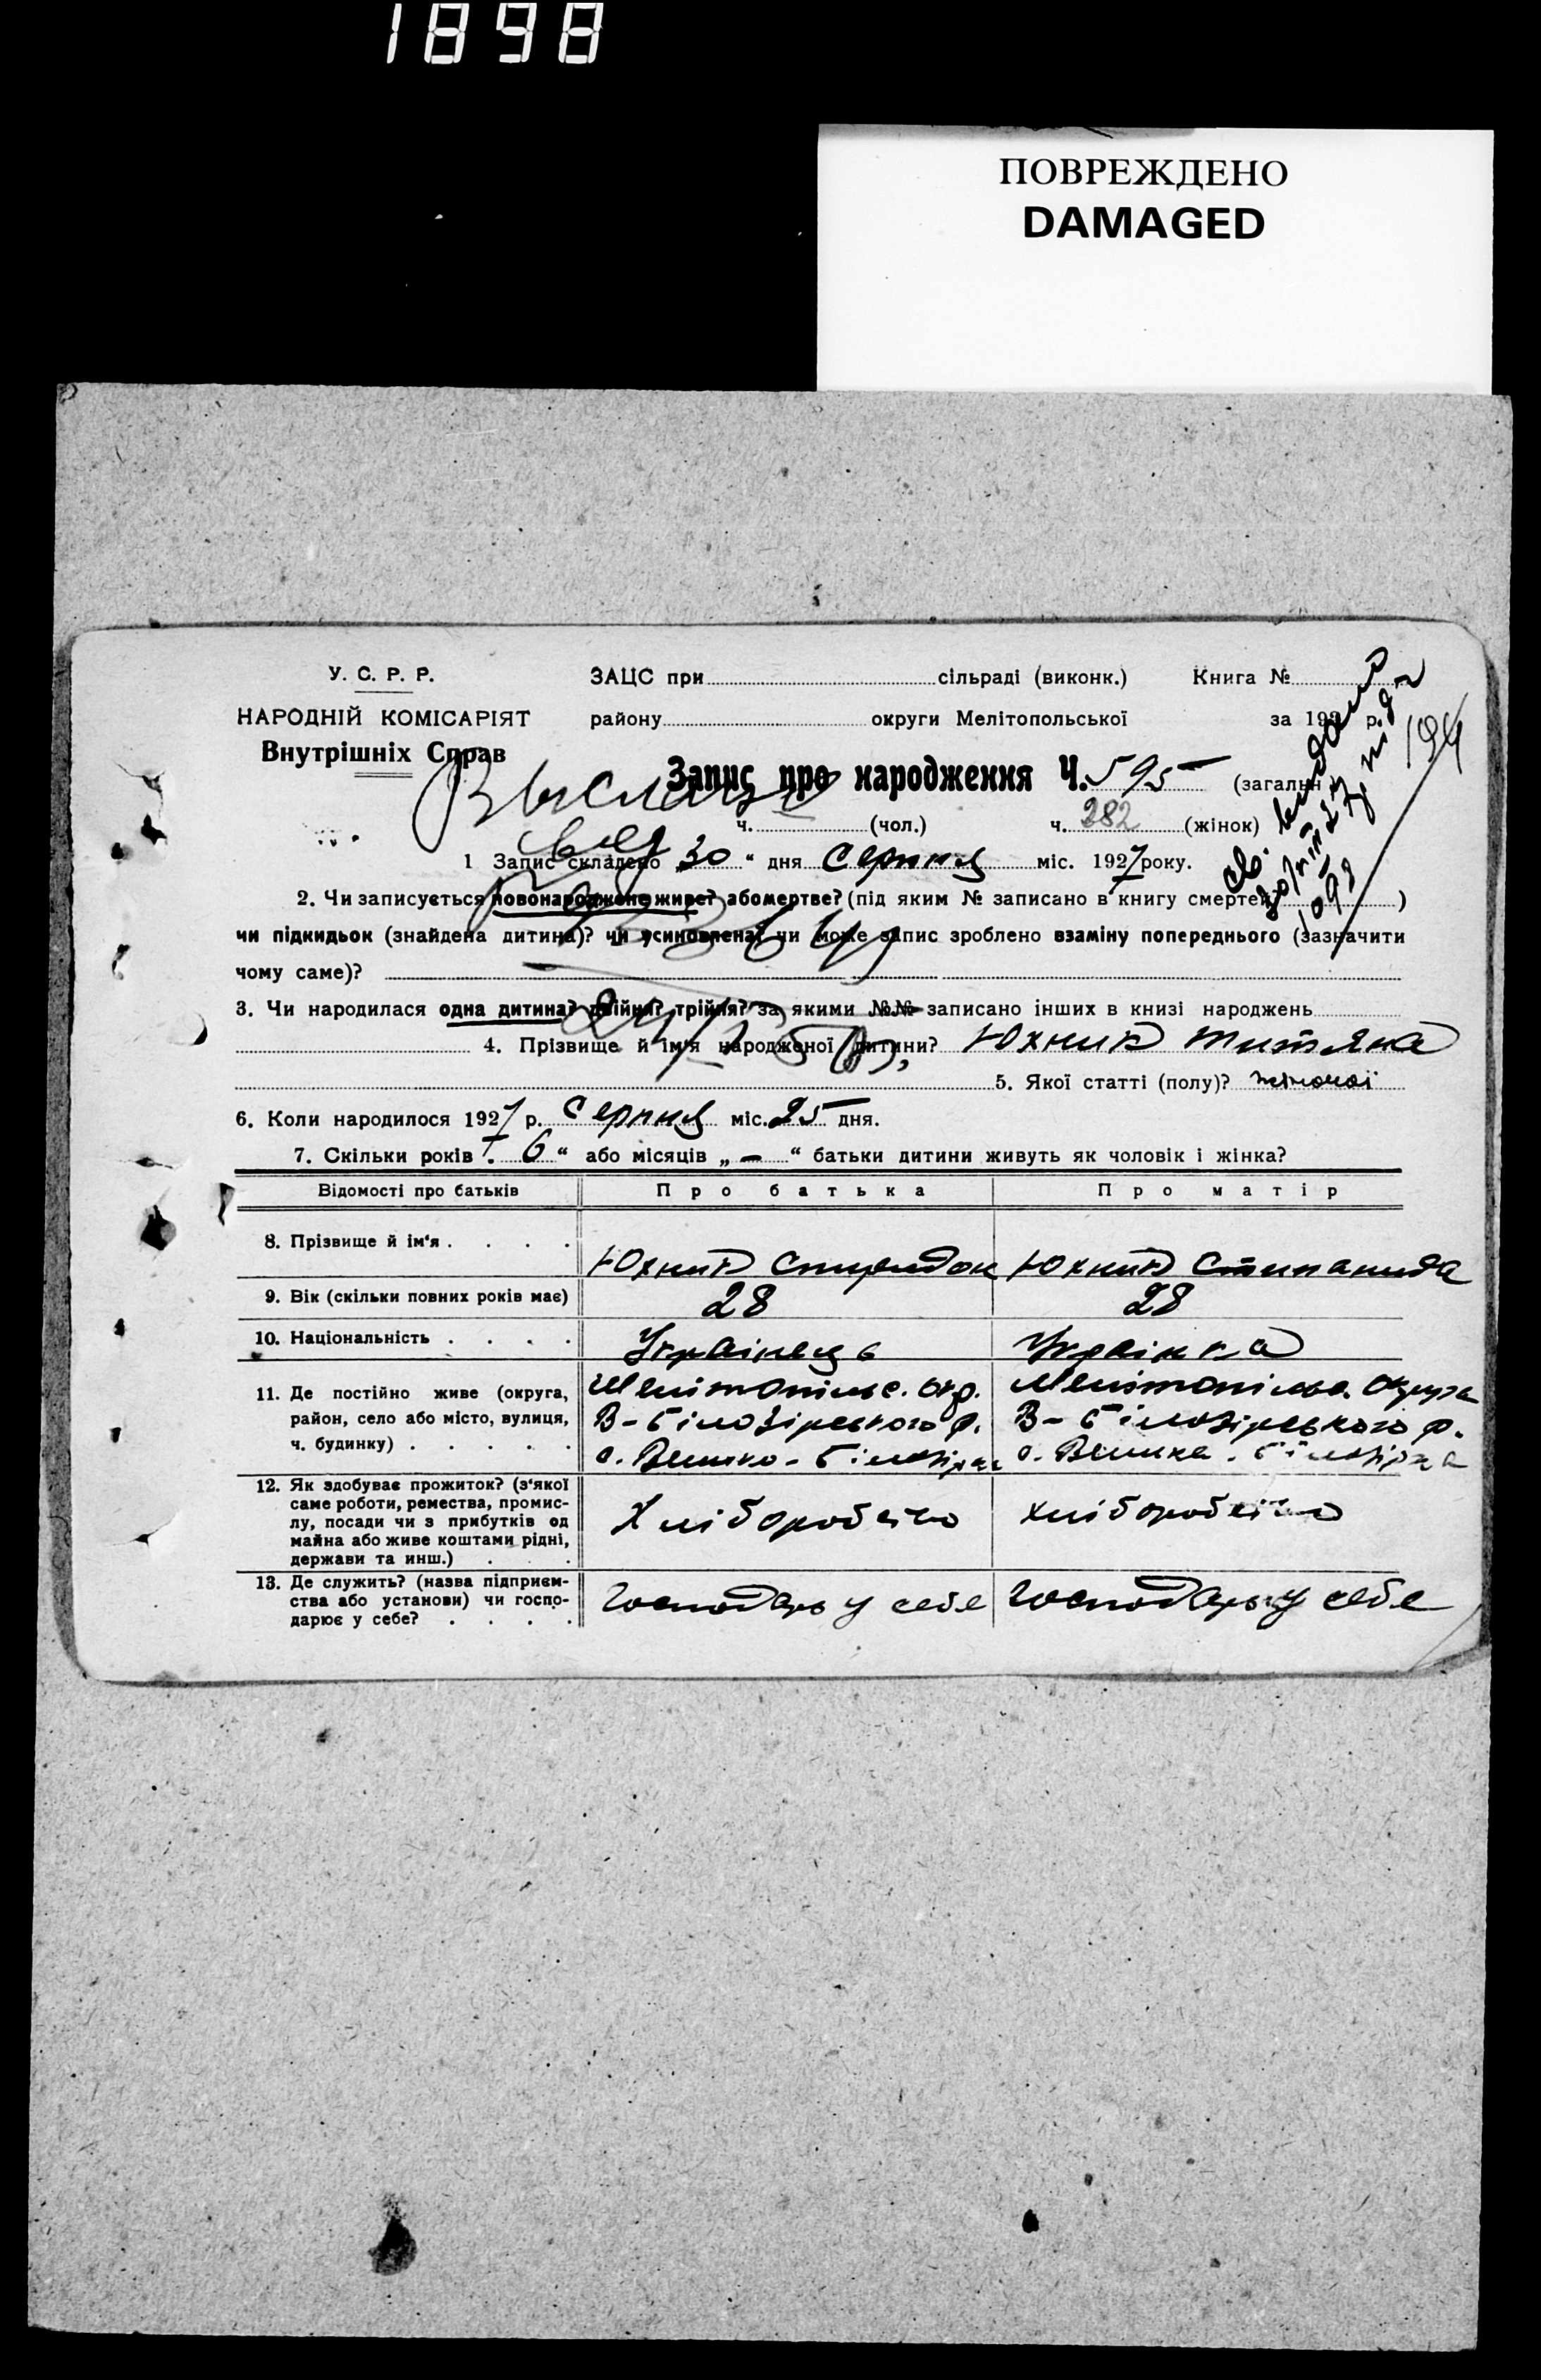 1898
ПОВРЕЖДЕНО
DAMAGED
У. С. Р. Р.
НАРОДНІЙ КОМІСАРІЯТ
Внутрішніх Справ
ЗАЦС при сільраді (виконк.) Книга №
району округи Мелітопольської за 192 р.
194
Запис про народження Ч. 595 (загальн
ч. (чол.) ч. 282 (жінок)
1 Запис складено 30 " дня Серпня міс. 1927 року.
2. Чи записується новонароджене живе? або мертве? (під яким № записано в книгу смертей )
чи підкидьок (знайдена дитина)? чи усиновлена? чи може запис зроблено взаміну попереднього (зазначити
чому саме)?
3. Чи народилася одна дитина? двійня? трійня? за якими №№ записано інших в книзі народжень
4. Прізвище й ім'я народженої дитини? Юхник Титяна
5. Якої статті (полу)? жіночої
6. Коли народилося 1927 р. Серпня міс. 25 дня.
7. Скільки років 6 " або місяців „ – " батьки дитини живуть як чоловік і жінка?
Відомості про батьків Про батька Про матір
8. Прізвище й ім'я . . . . Юхник Спиридон Юхник Степанида
9. Вік (скільки повних років має) 28 28
10. Національність . . . . Українець Українка
11. Де постійно живе (округа,
район, село або місто, вулиця,
ч. будинку) . . . . .
Мелітопільс. окр.
В-Білозірського р.
с. Велико-Білозірка
Мелітопільс. Округа
В-Білозірського р.
с. Велика-Білозірка
12. Як здобуває прожиток? (з'якої
саме роботи, ремества, промис-
лу, посади чи з прибутків од
майна або живе коштами рідні,
держави та инш.) . .
Хліборобство хліборобство
13. Де служить? (назва підприєм-
ства або установи) чи госпо-
дарює у себе? . . . .
Господарь у себе Господарь у себе